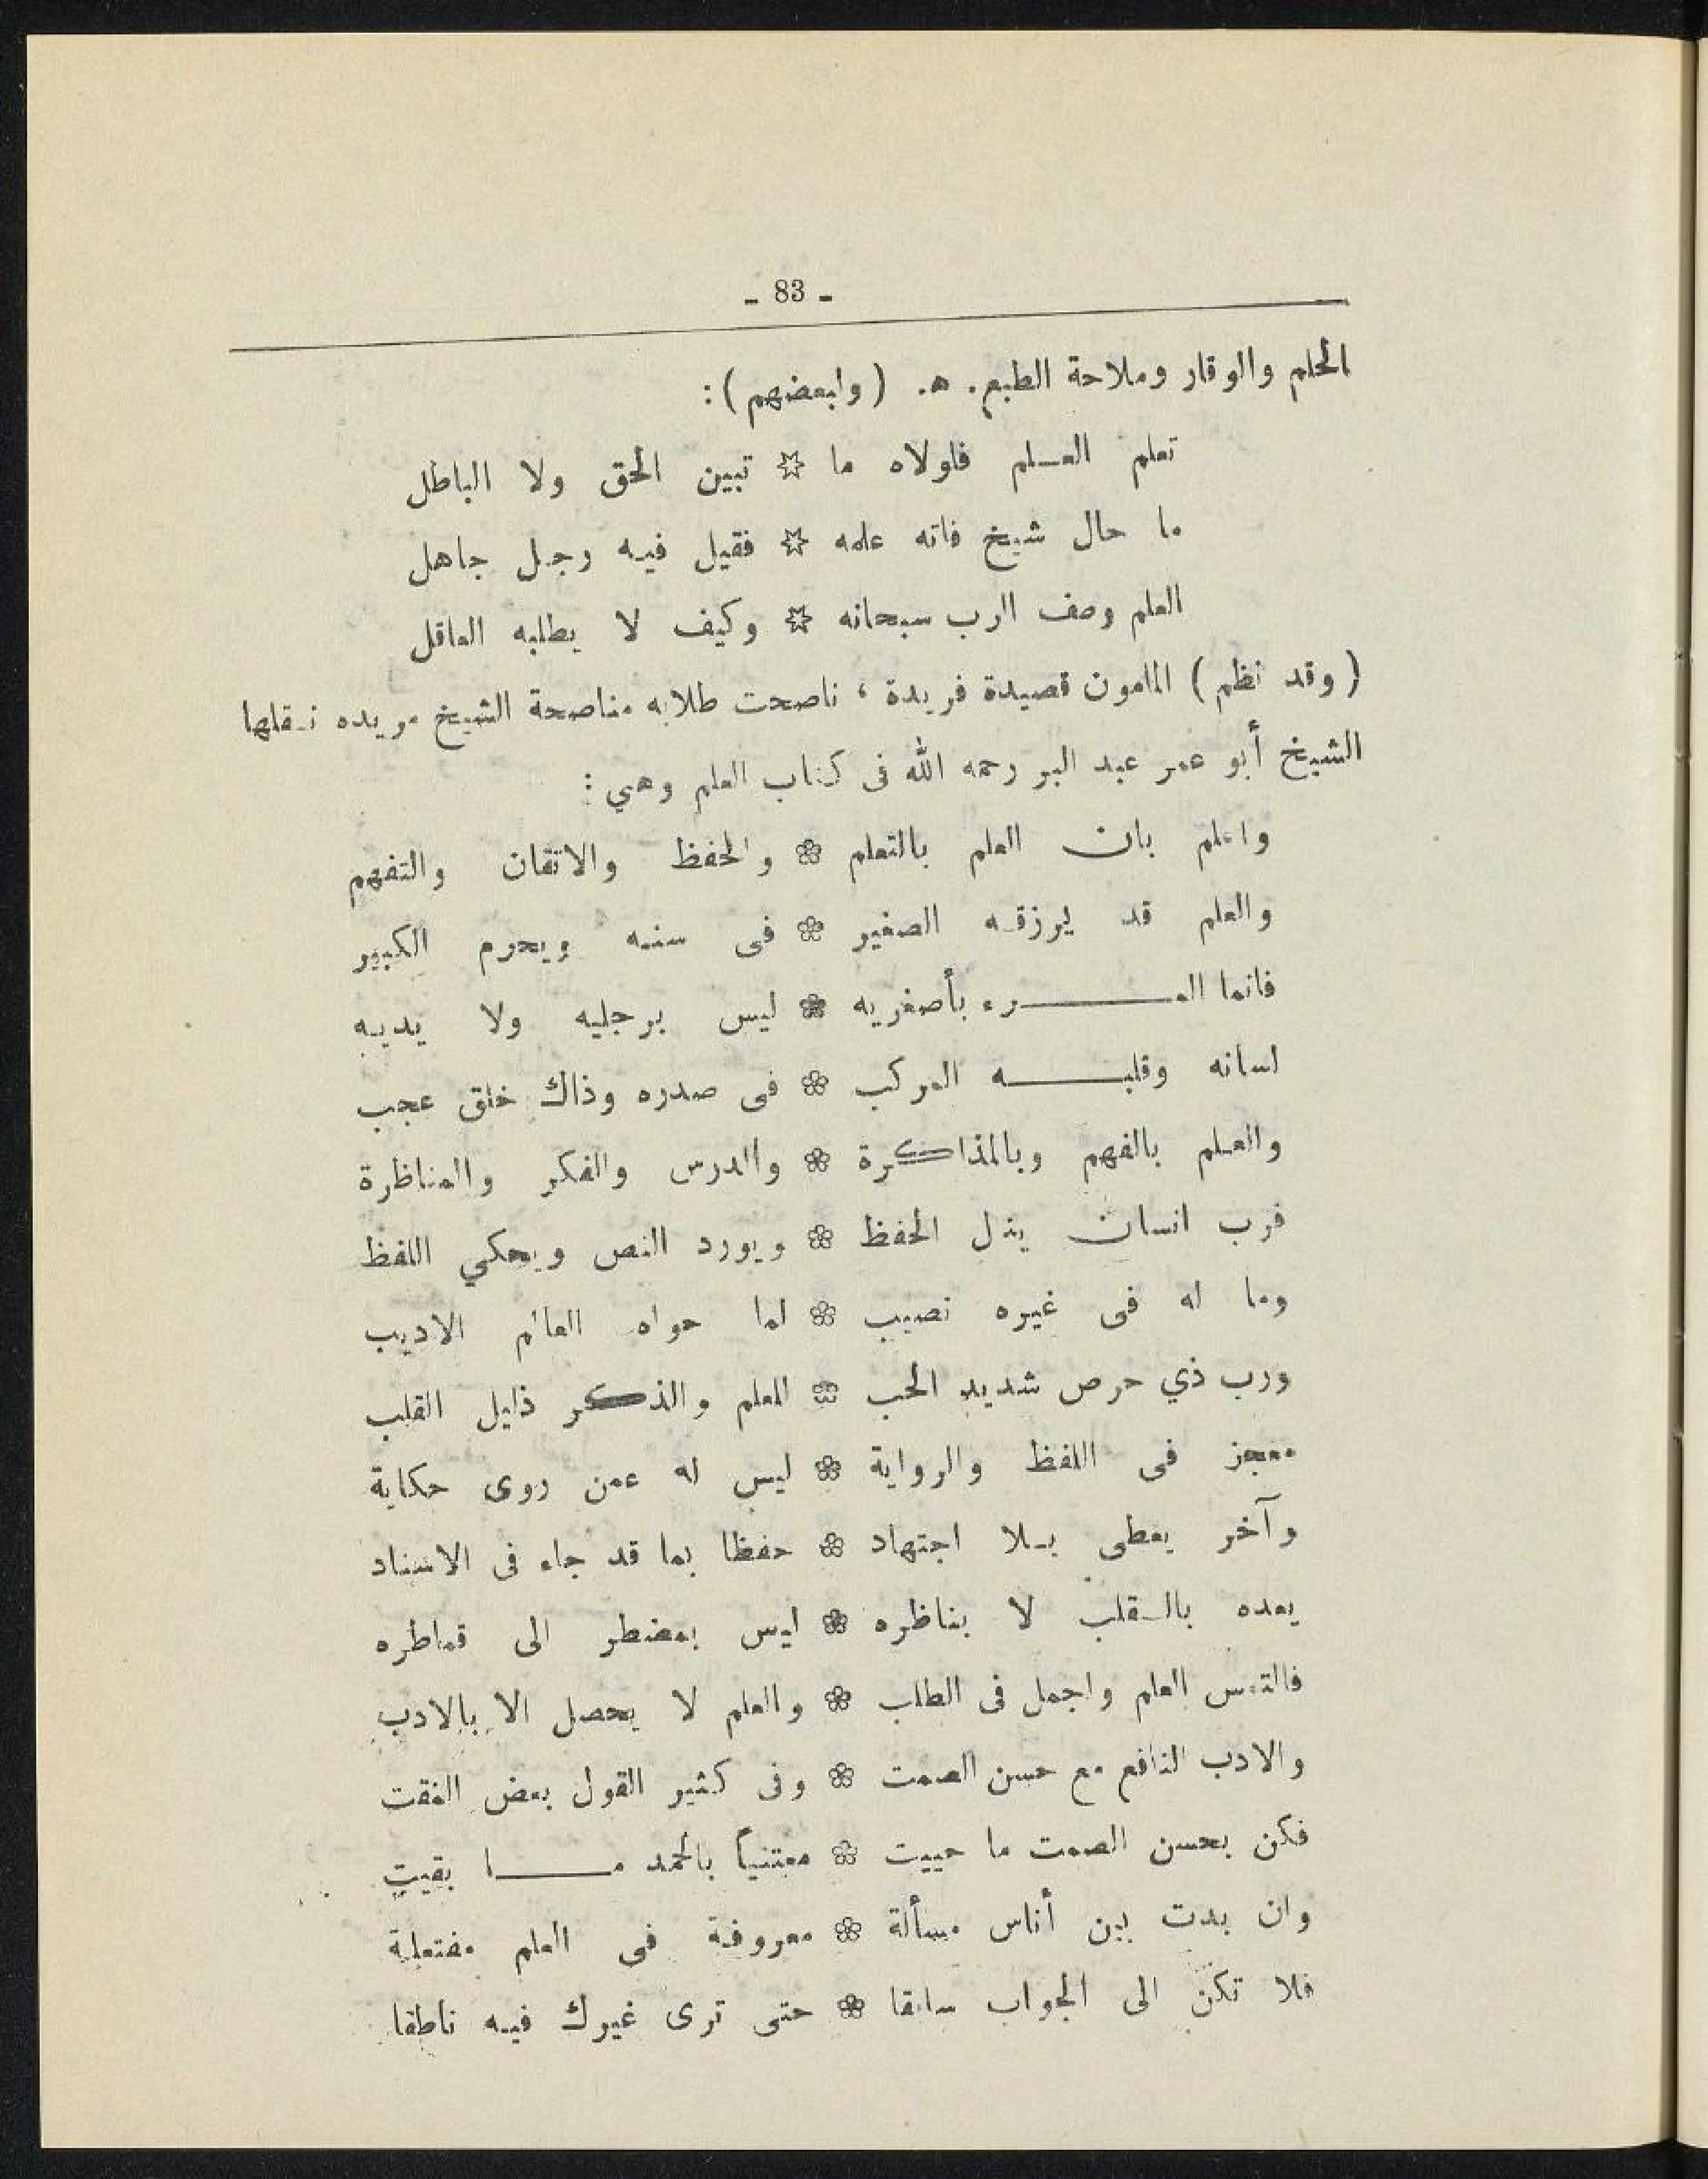 - 83 -
الحلم والوقار وملاحة الطبع. ه. (ولبعضهم):
تعلم العلم فلولاه ما ☆ تبين الحق ولا الباطل
ما حال شيخ فاته علمه ☆ فقيل فيه رجل جاهل
العلم وصف الرب سبحانه ☆ وكيف لا يطلبه العاقل
(وقد نظم) المامون قصيدة فريدة ، ناصحت طلابه مناصحة الشيخ مريده نقلها
الشيخ أبو عمر عبد البر رحمه الله فى كتاب العلم وهي :
واعلم بان العلم بالتعلم ❀ والحفظ والاتقان والتفهم
والعلم قد يرزقه الصغير ❀ فى سنه ويحرم الكبير
فانما المرء بأصغريه ❀ ليس برجليه ولا يديه
لسانه وقلبه المركب ❀ فى صدره وذاك خلق عجب
والعلم بالفهم وبالمذاكرة ❀ والدرس والفكر والمناظرة
فرب انسان ينل الحفظ ❀ ويورد النص ويحكي اللفظ
وما له فى غيره نصيب ❀ لما حواه العالم الاديب
ورب ذي حرص شديد الحب ❀ للعلم والذكر ذليل القلب
معجز فى اللفظ والرواية ❀ ليس له عمن روى حكاية
وآخر يعطى بلا اجتهاد ❀ حفظا بما قد جاء فى الاسناد
يعده بالقلب لا بناظره ❀ ليس بمضطر الى قماطره
فالتمس العلم واجمل فى الطلب ❀ والعلم لا يحصل الا بالادب
والادب النافع مع حسن الصمت ❀ وفى كثير القول بعض المقت
فكن بحسن الصمت ما حييت ❀ معتنياً بالحمد ما بقيت
وان بدت بين أناس مسألة ❀ معروفة فى العلم مفتعلة
فلا تكن الى الجواب سابقا ❀ حتى ترى غيرك فيه ناطقا